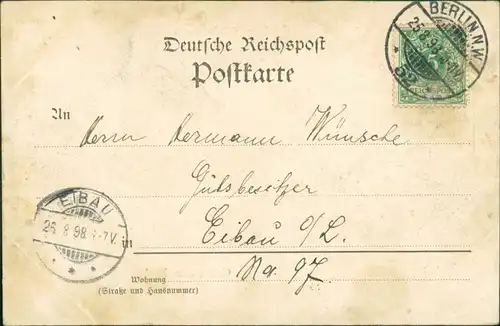 BERLIN N.W.
25.8.98
52
Deutsche Reichspost
Postkarte
An
Herrn Hermann Wünsche
Gutsbesitzer
EIBAU
26.8.98
in Eibau O/L.
Wohnung No. 97.
(Straße und Hausnummer)